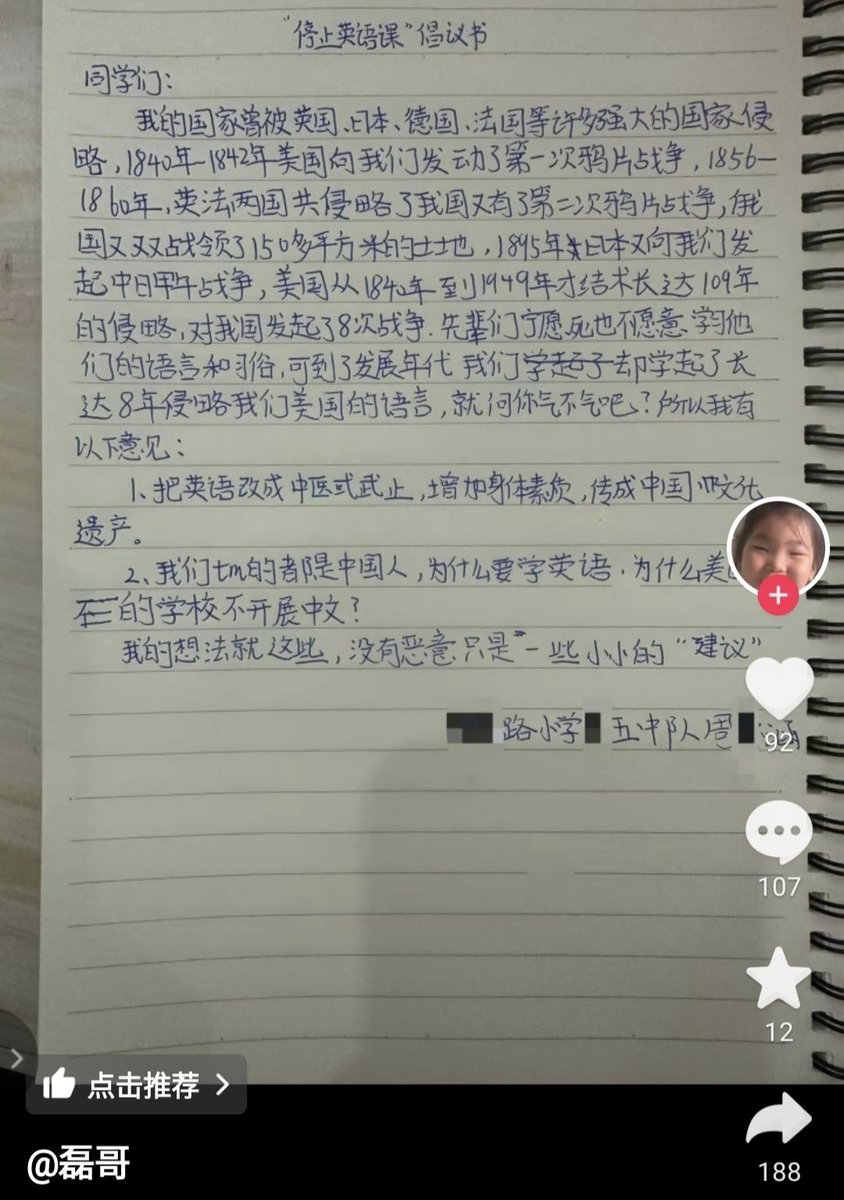 "停止英语课"倡议书
同学们：
我的国家曾被英国、日本、德国、法国等许多强大的国家侵
略，1840年-1842年美国向我们发动了第一次鸦片战争，1856—
1860年，英法两国共侵略了我国又有了第二次鸦片战争，俄
国又双叒占领了150多平方米的土地，1895年日本又向我们发
起中日甲午战争，美国从1840年到1949年才结术长达109年
的侵略，对我国发起了8次战争．先辈们宁愿死也不愿意学习他
们的语言和习俗，可到了发展年代 我们却学起了长
达8年侵略我们美国的语言，就问你气不气吧？所以我有
以下意见：
1、把英语改成中医或武止，增加身体素质，传成中国文化
遗产。
2、我们tm的都是中国人，为什么要学英语．为什么美
的学校不开展中文？
我的想法就这些，没有恶意只是一些小小的"建议"
路小学 五中队周 涵
92
107
12
点击推荐
@磊哥
188